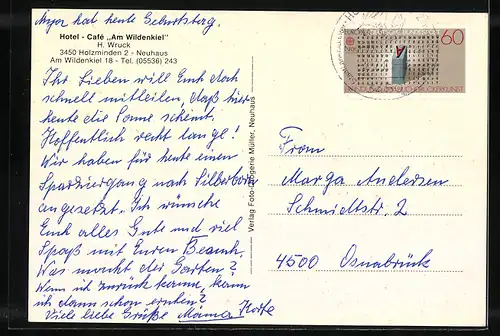 hat heute Geburtstag.
Hotel - Café „Am Wildenkiel"
H. Wruck
3450 Holzminden 2 - Neuhaus
Am Wildenkiel 18 - Tel. (05536) 243
Ihr Lieben will Euch doch
schnell mitteilen, daß hier
heute die Sonne scheint.
Hoffentlich recht lange!
Wir haben für heute einen
Spaziergang nach Silberborn
angesetzt. Ich wünsche
Euch alles Gute und viel
Spaß mit Eurem Besuch.
Was macht der Garten?
Wenn ich zurück komme, kann
ich dann schon ernten?
Viele liebe Grüße Mama
Verlag Foto Müller, Neuhaus
60
Frau
Marga Andersen
Schmidtstr. 2
4500 Osnabrück